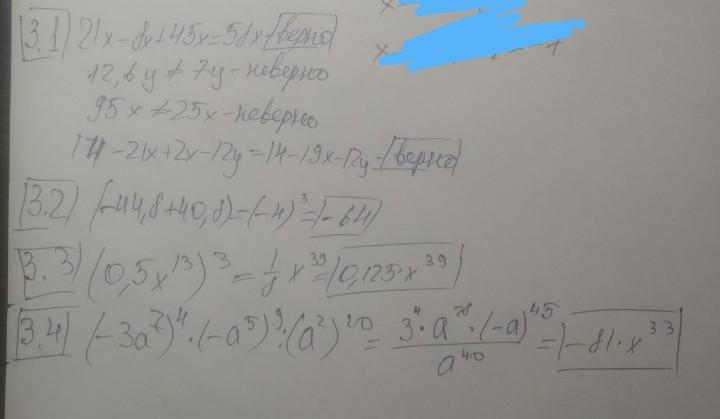 3.1) 21x-8x+45x=58x-верно
12,6y≠7y-неверно
95x≠25x-неверно
14-21x+2x-12y=14-19x-12y-верно
3.2) (-44,8+40,8)=(-4)³=-64
3.3 (0,5x¹³)³=1/8 x³⁹=0,125·x³⁹
3.4) (-3a⁷)⁴·(-a⁵)⁹:(a²)²⁰=3⁴·a²⁸·(-a)⁴⁵/a⁴⁰=-81·x³³